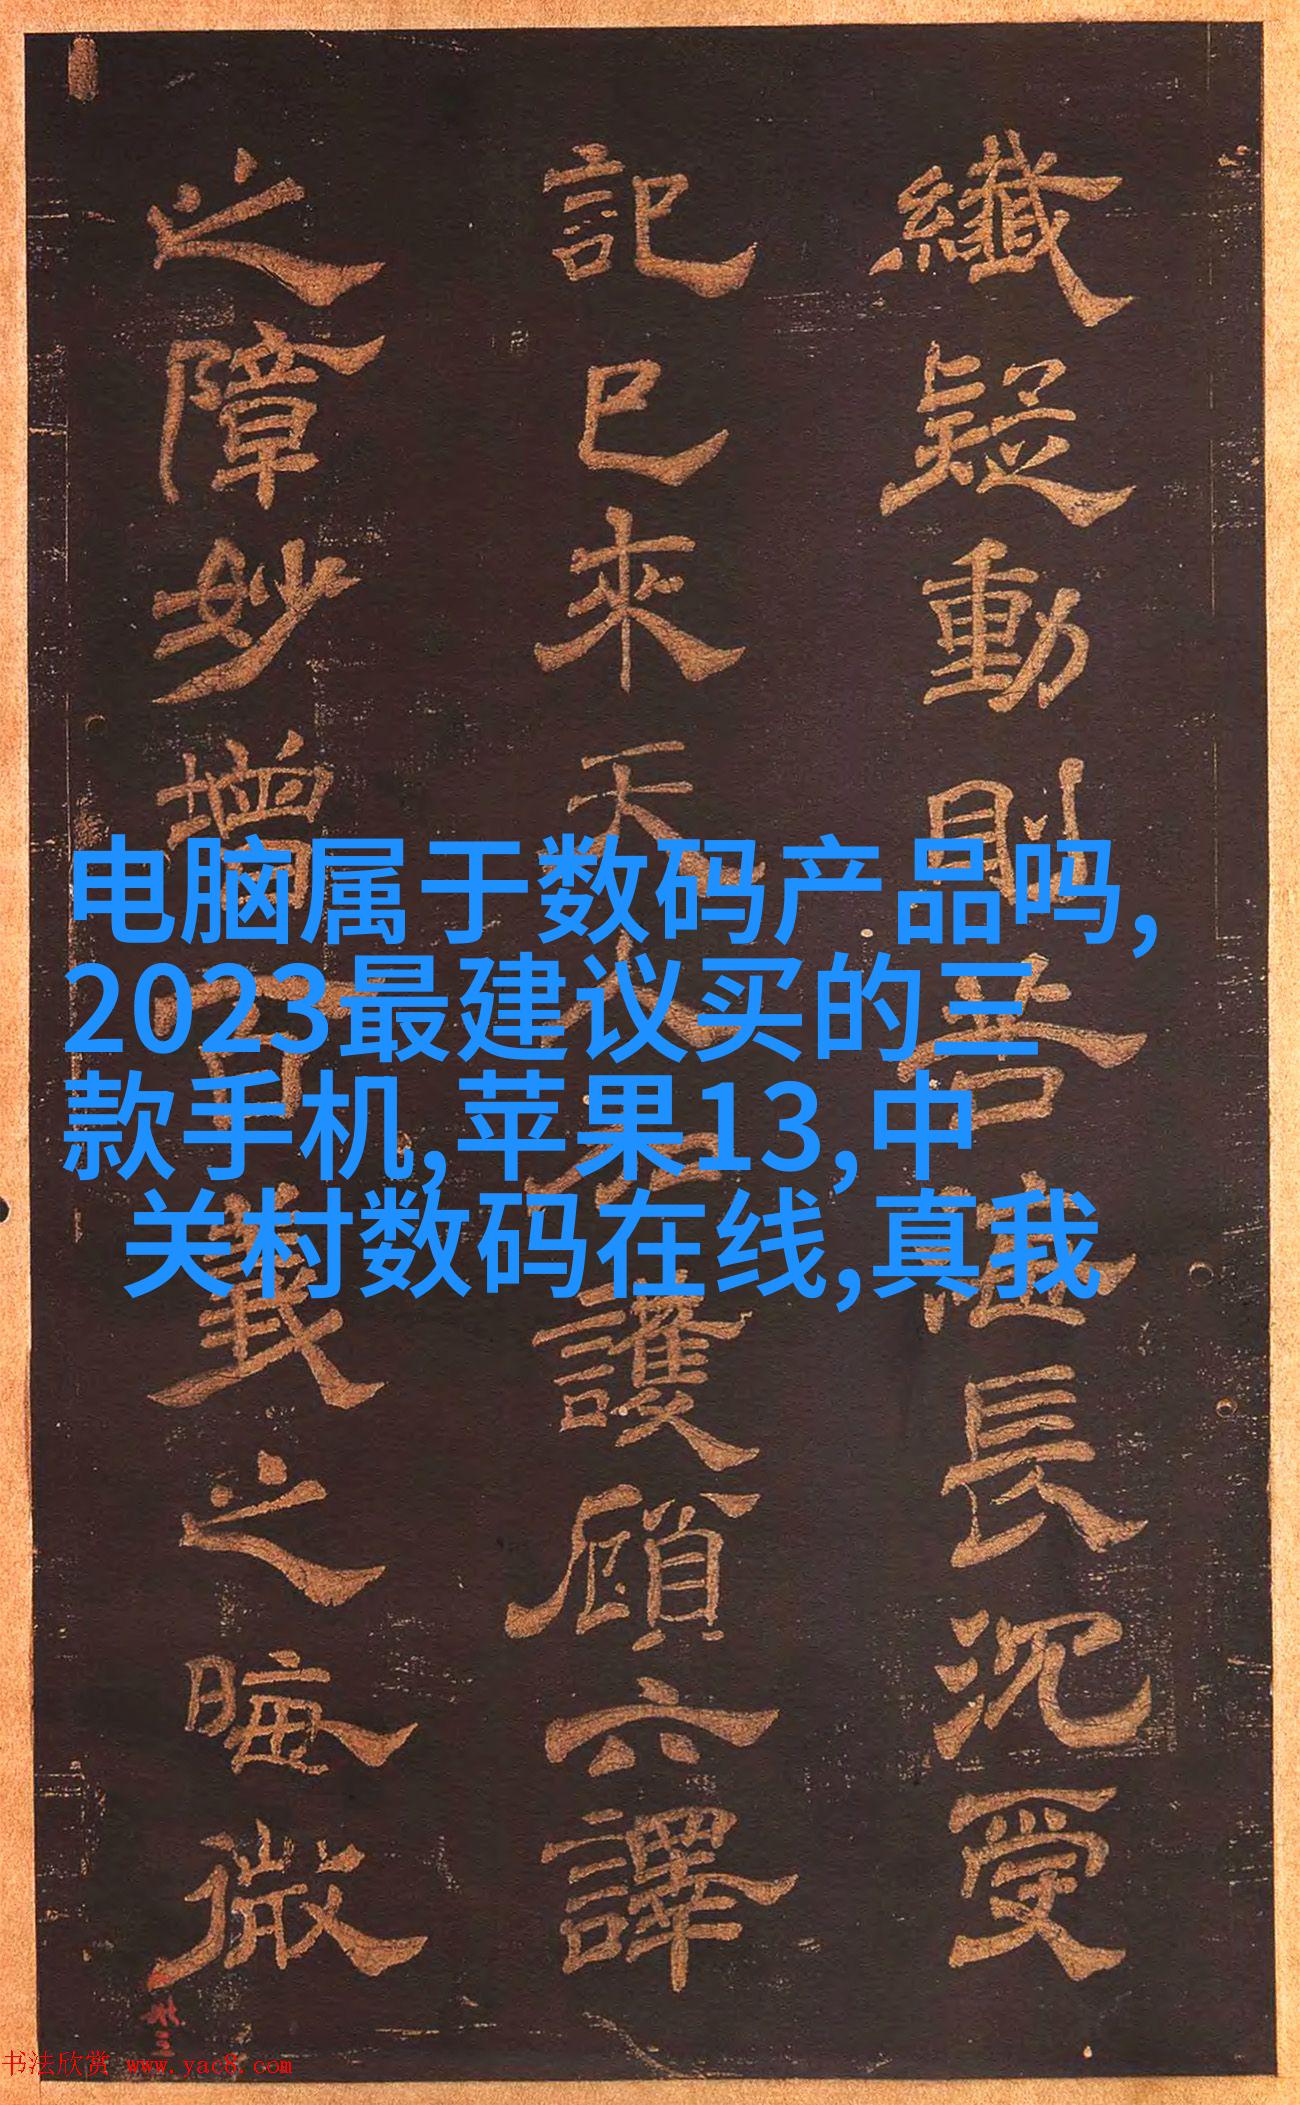 电脑属于数码产品吗,
2023最建议买的三
款手机,苹果13,中
关村数码在线,真我
纖疑動則善惡長沉受
記已來天人護顧六譯
之障妙增百義之晦微
书法欣赏 www.yac8.com